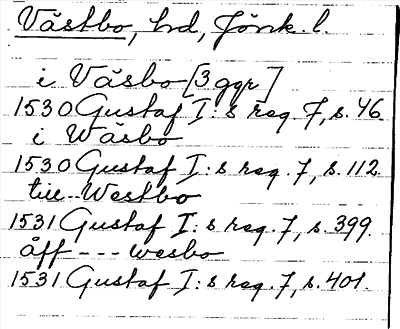 Västbo, hd, Jönk. l.
i Väsbo [3 ggr]
1530 Gustaf I:s reg. 7, s. 46.
i Wäsbo
1530 Gustaf I:s reg. 7, s. 112.
till Westbo
1531 Gustaf I:s reg. 7, s. 399.
åff --- wesbo
1531 Gustaf I:s reg. 7, s. 401.